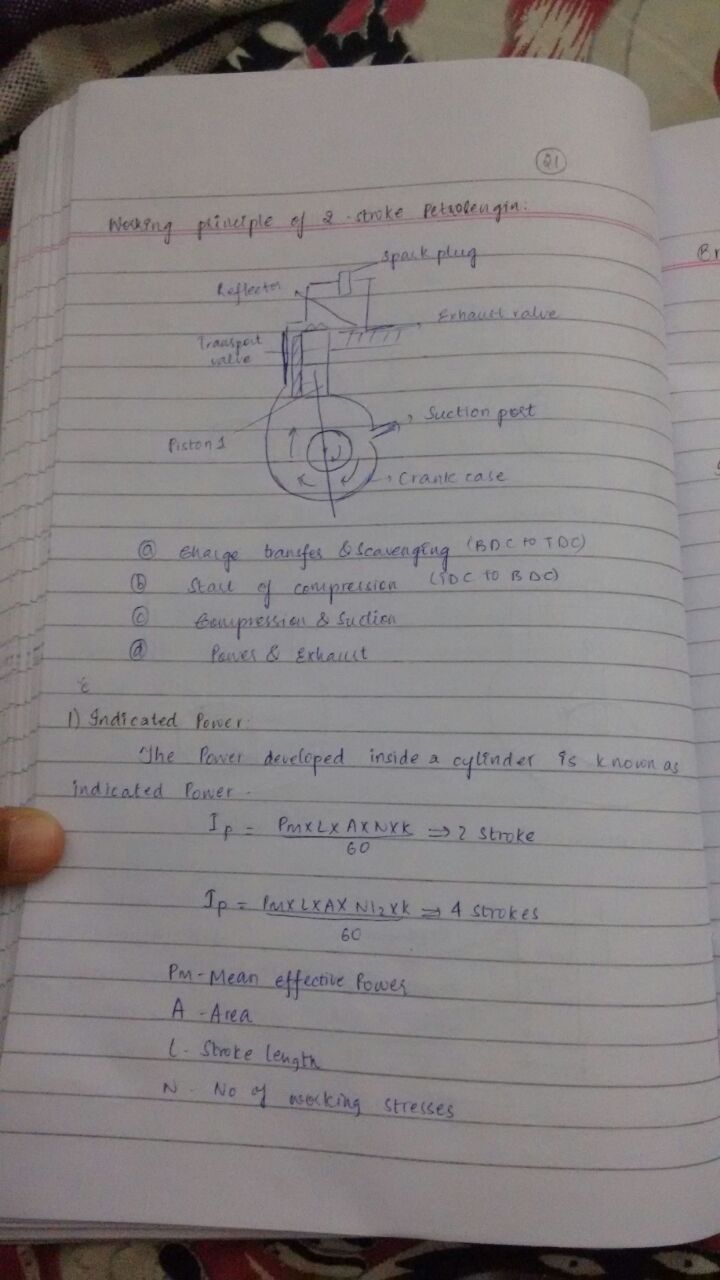 21
Working principle of 2-stroke Petrolengin:
Spark plug
Reflector
Exhaust valve
Transport
valve
Suction port
Piston 1
Crank case
(a) Charge transfer & Scavenging (BDC to TDC)
(b) Start of compression (TDC to BDC)
(c) Compression & Suction
(d) Power & Exhaust
1) Indicated Power:
The Power developed inside a cylinder is known as
indicated Power.
Ip = PmxLxAxNxK ⇒ 2 stroke
60
Ip = PmxLxAxN/2xK ⇒ 4 strokes
60
Pm-Mean effective Power
A - Area
L - Stroke length
N - No of working stresses
Br